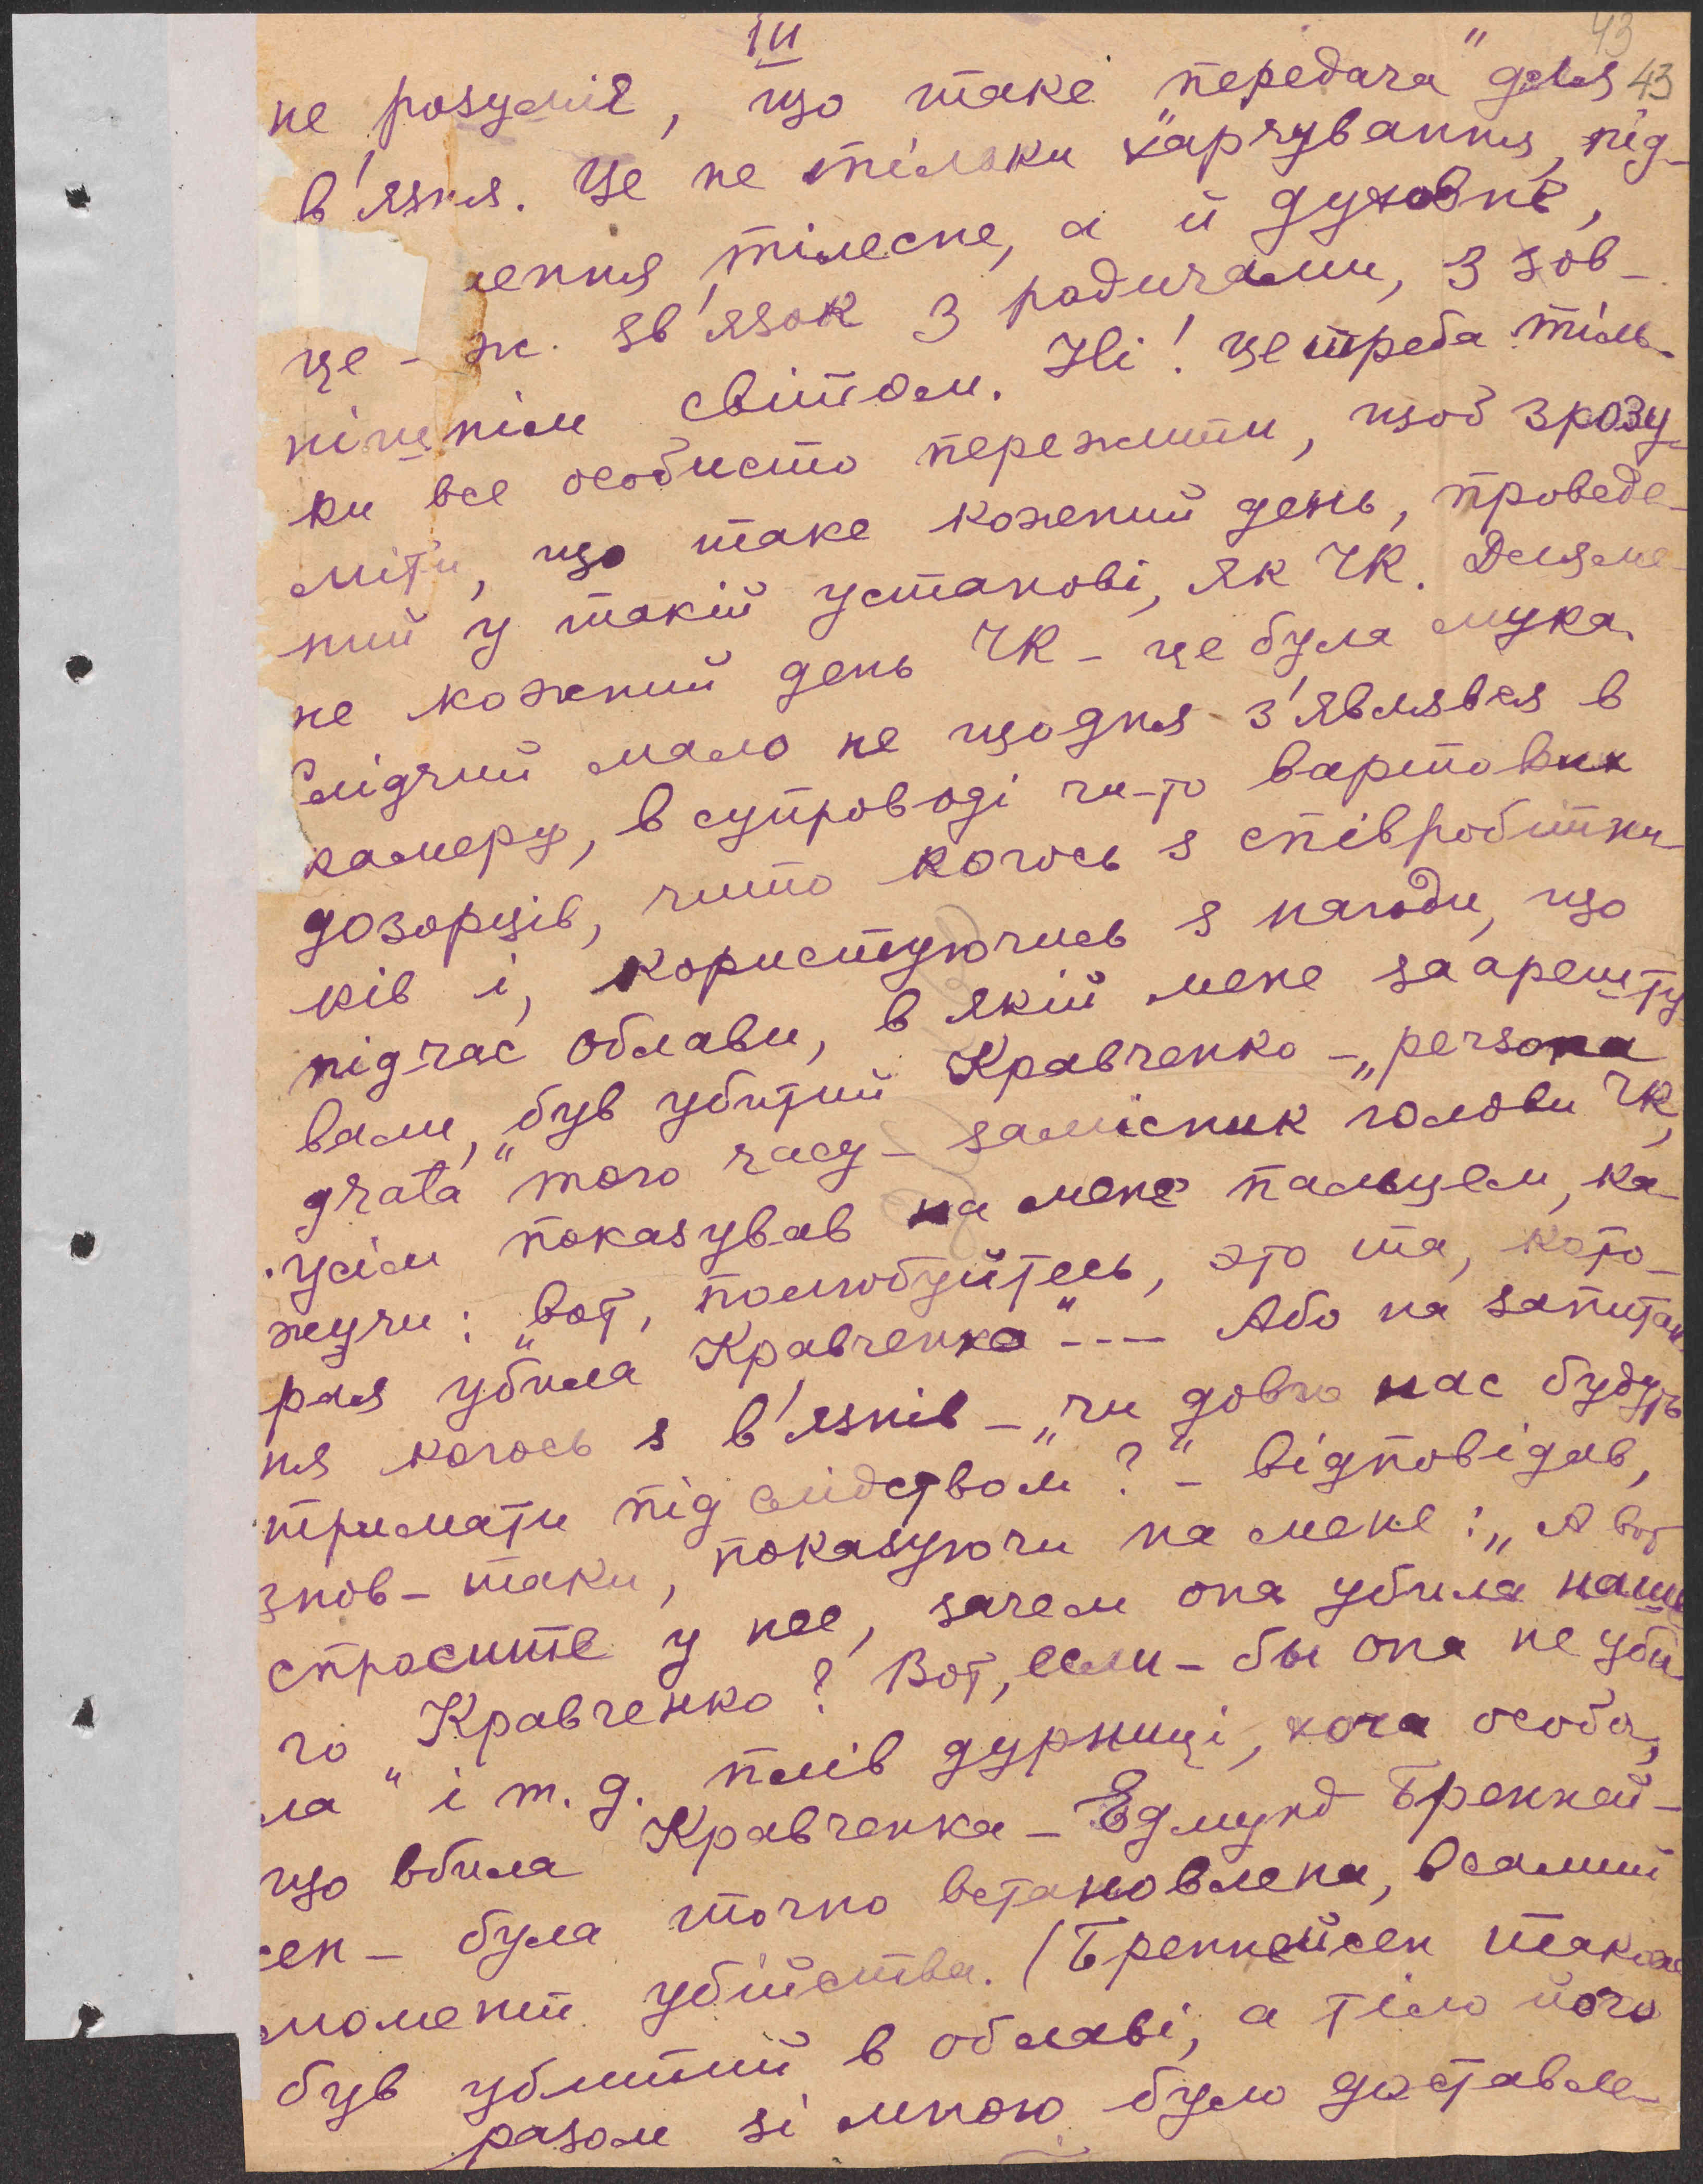 III
43
не розуміє, що таке „передача" для 43
в'язня. Це не тільки харчування, під-
ення тілесне, а й духовне,
це-ж зв'язок з родичами, з зов-
нішнім світом. Ні! це треба тіль-
ки все особисто пережити, щоб зрозу-
міти, що таке кожний день, проведе-
ний у такій установі, як ЧК. Для ме-
не кожний день ЧК – це була мука.
Слідчий мало не щодня з'являвся в
камеру, в супроводі чи-то вартових
дозорців, чи-то когось з співробітни-
ків і, користуючись з нагоди, що
під-час облави, в якій мене заарешту-
вали, був убитий Кравченко – „persona
grata" того часу – замісник голови ЧК,
усім показував на мене пальцем, ка-
жучи: „вот, полюбуйтесь, это та, кото-
рая убила Кравченко" --- Або на запитан-
ня когось з в'язнів – „чи довго нас будуть
тримати під слідством?" – відповідав,
знов-таки, показуючи на мене: „А вот
спросите у нее, зачем она убила наше
го Кравченко? Вот, если-бы она не уби-
ла" і т. д. плів дурниці, хоча особа,
що вбила Кравченка – Едмунд Бреннай-
сен – була точно встановлена, в самий
момент убійства. (Бреннейсен також
був убитий в облаві, а тіло його
разом зі мною було доставле-